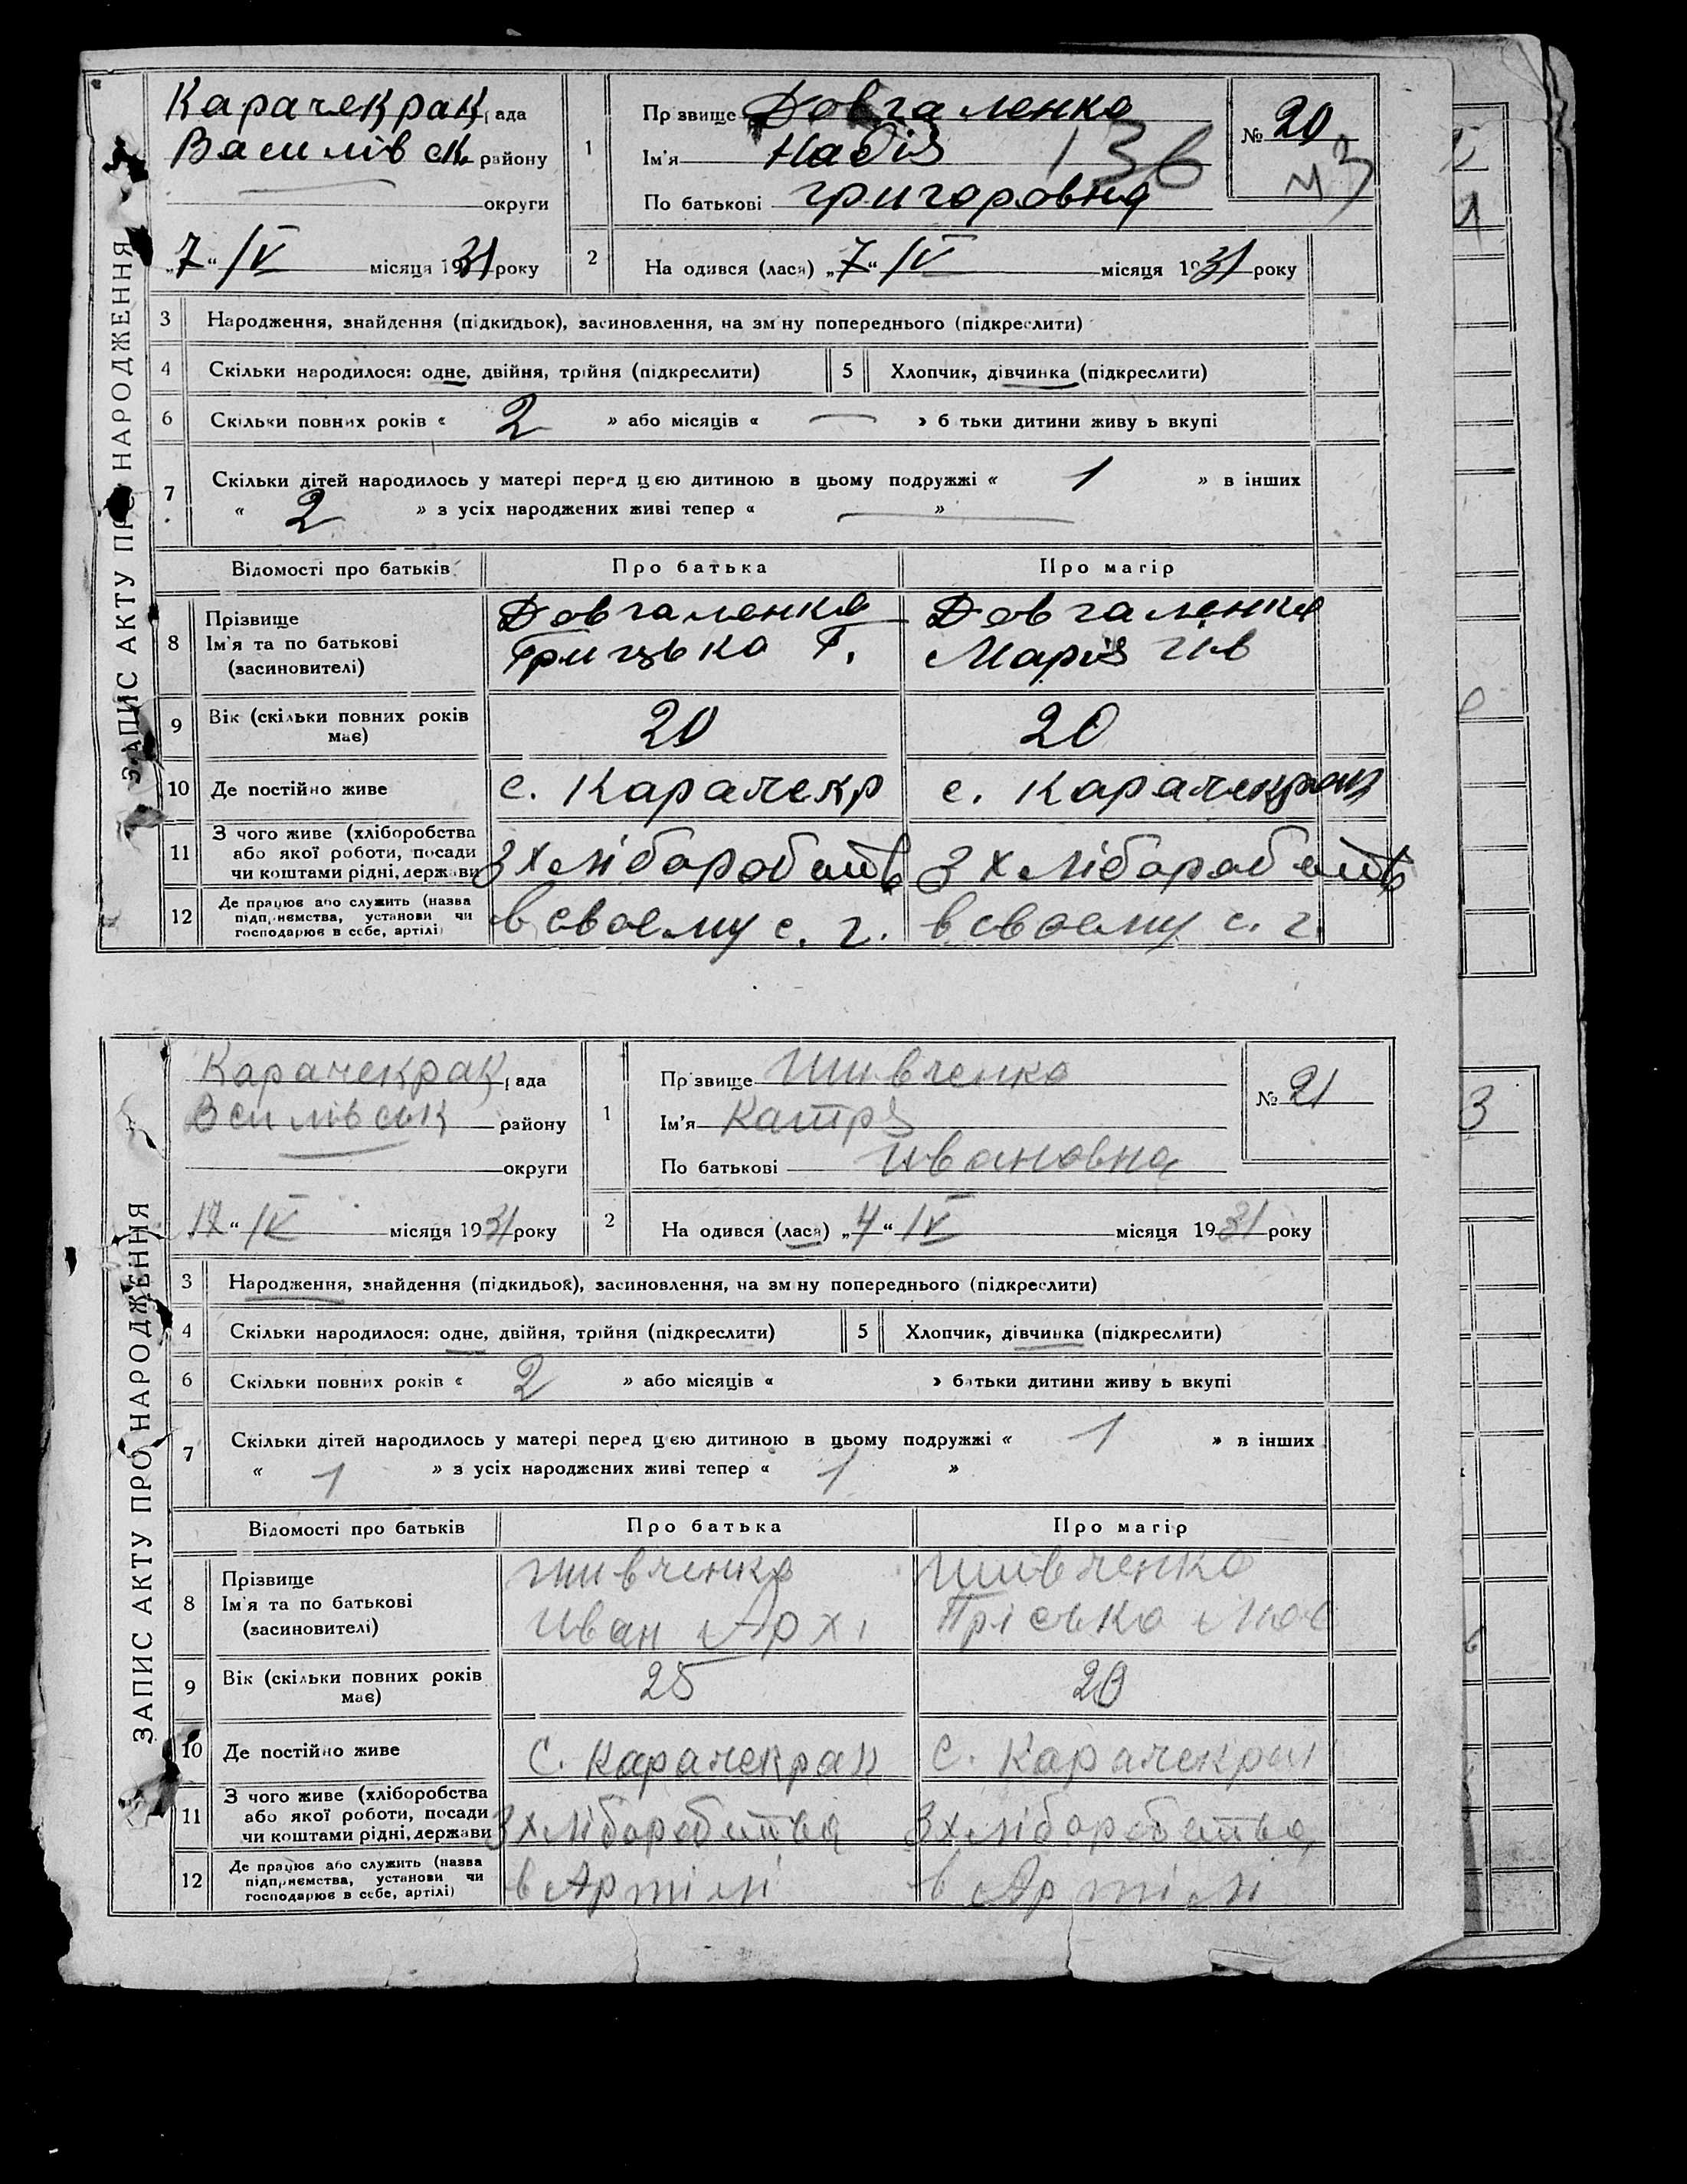 ЗАПИС АКТУ ПРО НАРОДЖЕННЯ
Карачекрак ада
Василівськ району
округи
„7“ IV місяця 1931 року
1
Пр звище Довгаленко
Ім'я Надія 136
По батькові Григоровна
№ 20
2
На одився (лася) „7“ IV місяця 1931 року
3 Народження, знайдення (підкидьок), засиновлення, на зм ну попереднього (підкреслити)
4 Скільки народилося: одне, двійня, трійня (підкреслити) 5 Хлопчик, дівчинка (підкреслити)
6 Скільки повних років « 2 » або місяців « — » б тьки дитини живу ь вкупі
7 Скільки дітей народилось у матері перед цією дитиною в цьому подружжі « 1 » в інших
« 2 » з усіх народжених живі тепер « — »
Відомості про батьків Про батька Про матір
8 Прізвище Довгаленко Довгаленко
Ім'я та по батькові Грицько Г. Марія
(засиновителі)
9 Вік (скільки повних років 20 20
має)
10 Де постійно живе с. Карачекр с. Карачекрак
11 З чого живе (хліборобства
або якої роботи, посади
чи коштами рідні, держави З хліборобств З хліборобств
12 Де працює або служить (назва
підприємства, установи чи
господарює в себе, артілі) в своему с. г. в своему с. г.
ЗАПИС АКТУ ПРО НАРОДЖЕННЯ
Карачекрак ада
Всилівськ району
округи
17 “ IV місяця 1931 року
1
Пр звище Шивченко
Ім'я Катря
По батькові Ивановна
№ 21
2
На одився (лася) „4“ IV місяця 1931 року
3 Народження, знайдення (підкидьок), засиновлення, на зм ну попереднього (підкреслити)
4 Скільки народилося: одне, двійня, трійня (підкреслити) 5 Хлопчик, дівчинка (підкреслити)
6 Скільки повних років « 2 » або місяців « » батьки дитини живу ь вкупі
7 Скільки дітей народилось у матері перед цією дитиною в цьому подружжі « 1 » в інших
« 1 » з усіх народжених живі тепер « 1 »
Відомості про батьків Про батька Про матір
8 Прізвище Шивченко Шивченко
Ім'я та по батькові Иван Арх. Пріська
(засиновителі)
9 Вік (скільки повних років 25 20
має)
10 Де постійно живе С. Карачекрак с. Карачекрак
11 З чого живе (хліборобства
або якої роботи, посади
чи коштами рідні, держави З хліборобства З хліборобства
12 Де працює або служить (назва
підприємства, установи чи
господарює в себе, артілі) в Артілі в Артілі